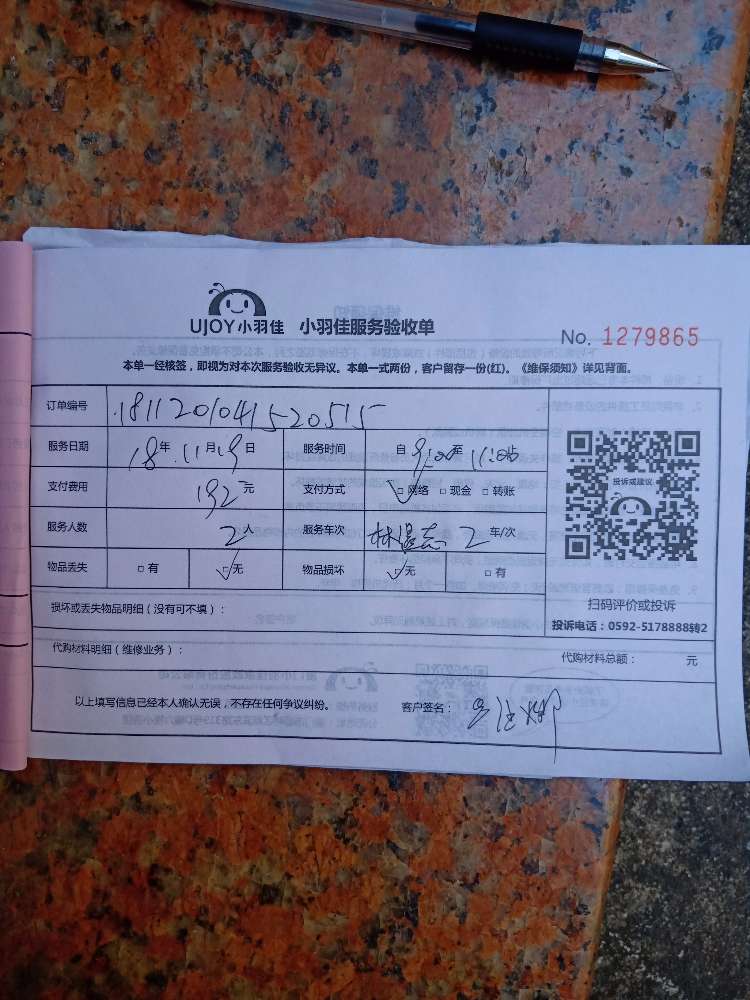 UJOY小羽佳 小羽佳服务验收单
No. 1279865
本单一经核签，即视为对本次服务验收无异议。本单一式两份，客户留存一份(红)。《维保须知》详见背面。
订单编号 1811201041520515
服务日期 18年 11月19日 服务时间 自 9:00至 11:00
支付费用 192元 支付方式 ☑网络 □现金 □转账
服务人数 2人 服务车次 2车/次
物品丢失 □有 ☑无 物品损坏 ☑无 □有
投诉或建议
扫码评价或投诉
投诉电话：0592-5178888转2
损坏或丢失物品明细（没有可不填）：
代购材料明细（维修业务）： 代购材料总额： 元
以上填写信息已经本人确认无误，不存在任何争议纠纷。 客户签名：